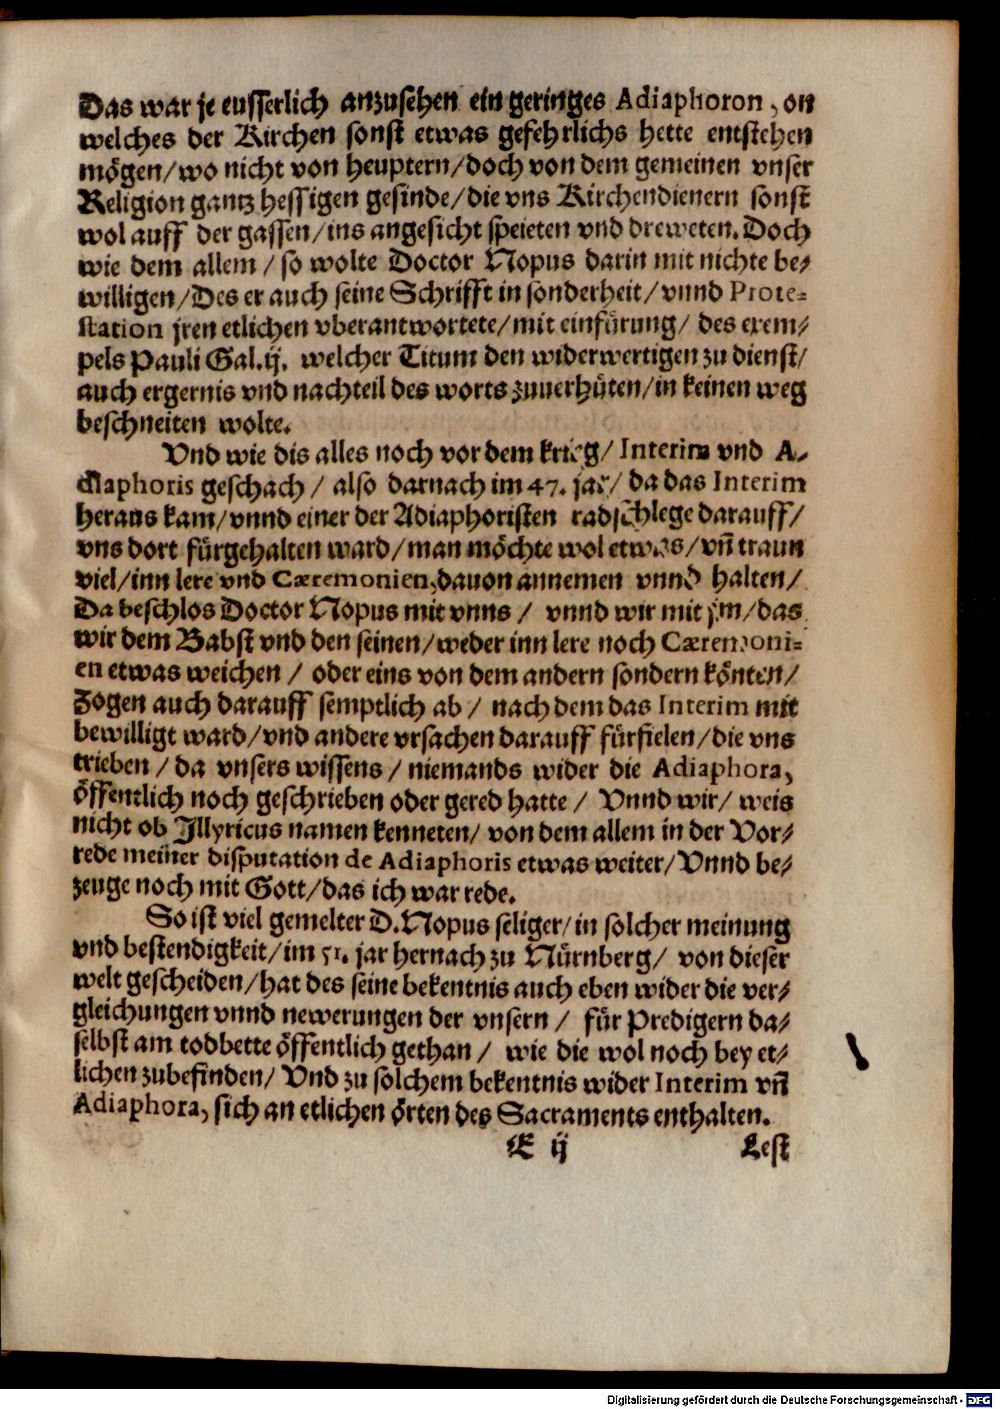 Das war je eusserlich anzusehen ein geringes Adiaphoron, on
welches der Kirchen sonst etwas gefehrlichs hette entstehen
mögen/wo nicht von heuptern/doch von dem gemeinen vnser
Religion gantz hessigen gesinde/die vns Kirchendienern sonst
wol auff der gassen/ins angesicht speieten vnd dreweten. Doch
wie dem allem / so wolte Doctor Nopus darin mit nichte be-
willigen/Des er auch seine Schrifft in sonderheit/vnnd Prote-
station jren etlichen vberantwortete/mit einfürung/ des exem-
pels Pauli Gal.ij. welcher Titum den widerwertigen zu dienst/
auch ergernis vnd nachteil des worts zuuerhüten/in keinen weg
beschneiten wolte.
Vnd wie dis alles noch vor dem krieg/ Interim vnd A-
diaphoris geschach / also darnach im 47. jar/ da das Interim
heraus kam/vnnd einer der Adiaphoristen radschlege darauff/
vns dort fürgehalten ward/man möchte wol etwas/vñ traun
viel/inn lere vnd Cæremonien,dauon annemen vnnd halten/
Da beschlos Doctor Nopus mit vnns / vnnd wir mit jm/das
wir dem Babst vnd den seinen/weder inn lere noch Cæremoni-
en etwas weichen / oder eins von dem andern sondern könten/
Zogen auch darauff semptlich ab / nach dem das Interim mit
bewilligt ward/vnd andere vrsachen darauff fürfielen/die vns
trieben / da vnsers wissens / niemands wider die Adiaphora,
öffentlich noch geschrieben oder gered hatte / Vnnd wir/ weis
nicht ob Jllyricus namen kenneten/ von dem allem in der Vor-
rede meiner disputation de Adiaphoris etwas weiter/Vnnd be-
zeuge noch mit Gott/das ich war rede.
So ist viel gemelter D.Nopus seliger/in solcher meinung
vnd bestendigkeit/im 51. jar hernach zu Nürnberg/ von dieser
welt gescheiden/hat des seine bekentnis auch eben wider die ver-
gleichungen vnnd newerungen der vnsern / für Predigern da-
selbst am todbette öffentlich gethan / wie die wol noch bey et-
lichen zubefinden/ Vnd zu solchem bekentnis wider Interim vñ
Adiaphora, sich an etlichen örten des Sacraments enthalten.
E ij Lest
Digitalisierung gefördert durch die Deutsche Forschungsgemeinschaft - DFG